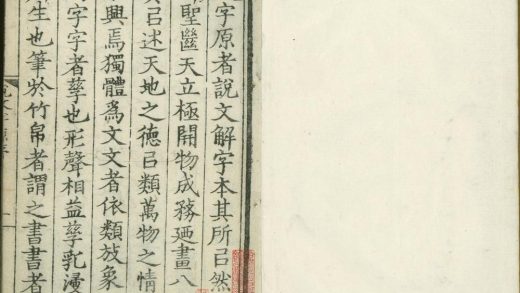 字原者說文解字本其所㠯然
聖繼天立極開物成務迺畫八
㠯述天地之德㠯類萬物之情
興焉獨體爲文文者依類放象
字字者孳也形聲相益孳乳浸
生也筆於竹帛者謂之書書者